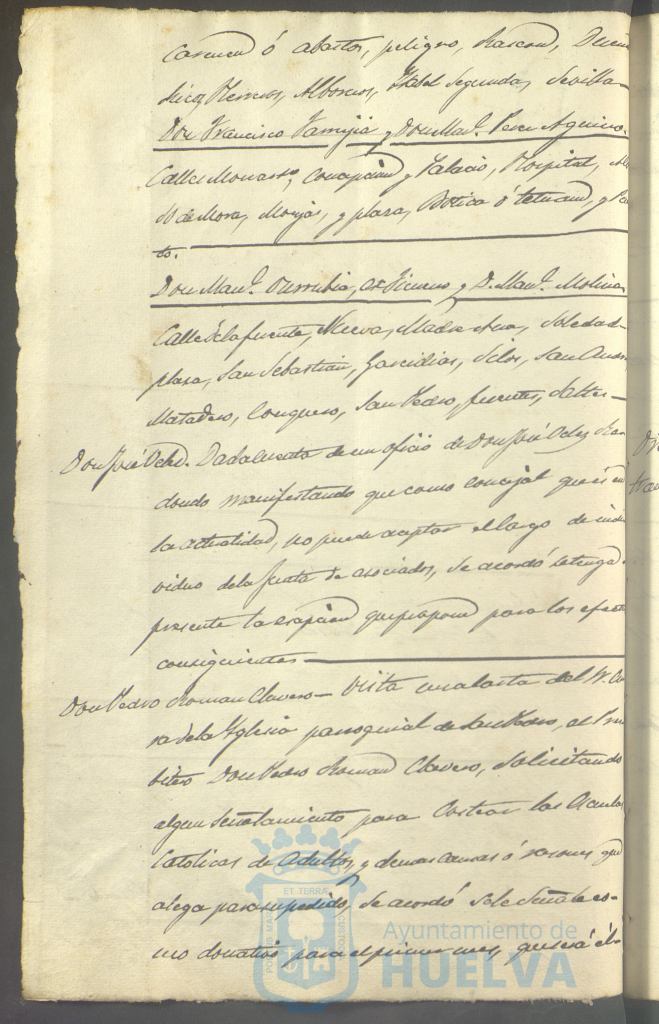 Carmen ó abastos, peligro, Rascon, Duen
Rico, Herreros, Albornoz, Isabel Segunda, Sevilla
Don Francisco Jamijia y Don Man.l Perez Aquino.
Calles Monasterio, Concepcion y Palacio, Hospital,
de Mora, Monjas, y plaza, Botica ó tetuan, y Pu
to.
Don Man.l Ourrubia, y D. Man.l Molina
Calle de la fuente, Nueva, Madre Ana, Soledad
plaza, San Sebastian, Garcidias, Silos, San Andr
Matadero, Conquero, San Pedro, fuentes,
Don José Ochd. Dada cuenta de un oficio de Don José
dondo manifestando que como concejal que es en
la actualidad, no puede aceptar el cargo de indi
viduo de la Junta de asociados, se acordó se tenga
presente la escepcion que propone para los efect
consiguientes
Don Pedro Roman Clavero - Vista una carta del Sr. Cu
ra de la Yglesia parroquial de San Pedro, el Pres
bitero Don Pedro Roman Clavero, solicitando
algun Señalamiento para Costear las Escuelas
Católicas de Adultos, y demas causas ó razones que
alega para su pedido, se acordó se le Señale co-
mo donativo para el primer mes, que será el
ET TERRÆ
PORTUS MARIS
CUSTODIA
Ayuntamiento de
HUELVA